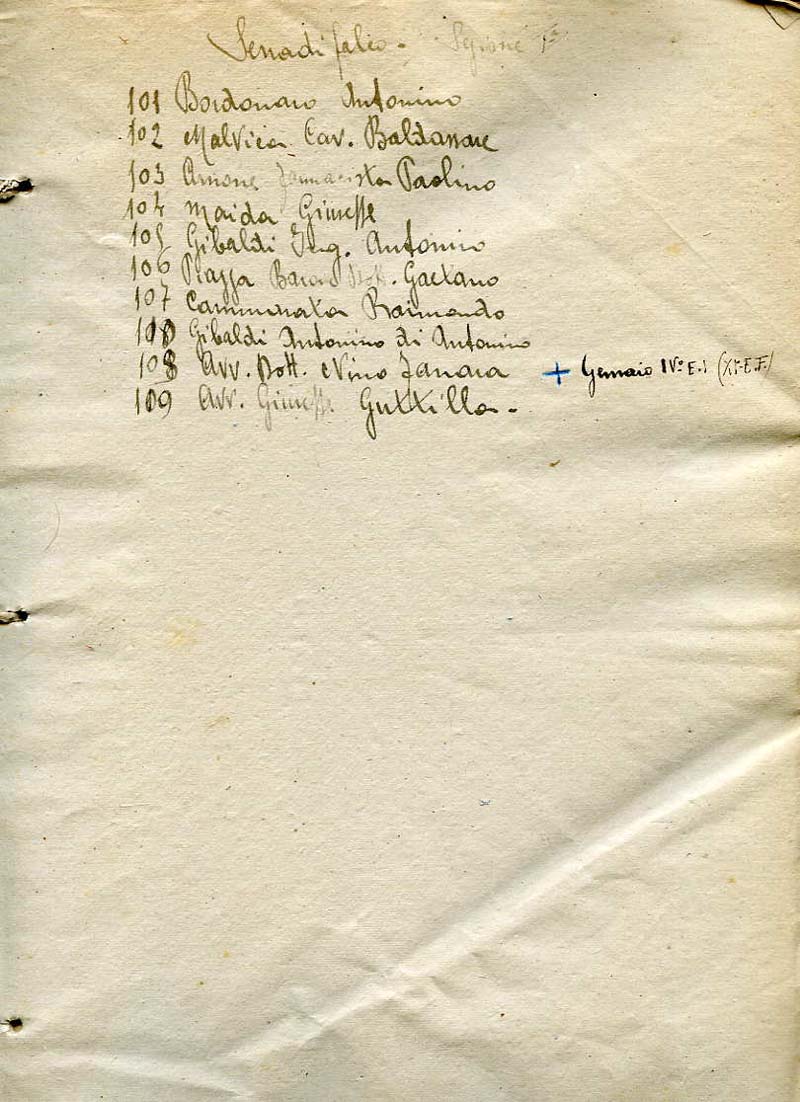 Serradifalco - Sezione 1ª
101 Bordonaro Antonino
102 Malvica Cav. Baldassare
103 Amone Farmacista Paolino
104 Maida Giuseppe
105 Gibaldi Ing. Antonino
106 Piazza Barone Dott. Gaetano
107 Camminata Raimondo
Gibaldi Antonino di Antonino
108 Avv. Dott. Nino Fanara + Gennaio IVº E.
109 Avv. Giuseppe Guttilla -